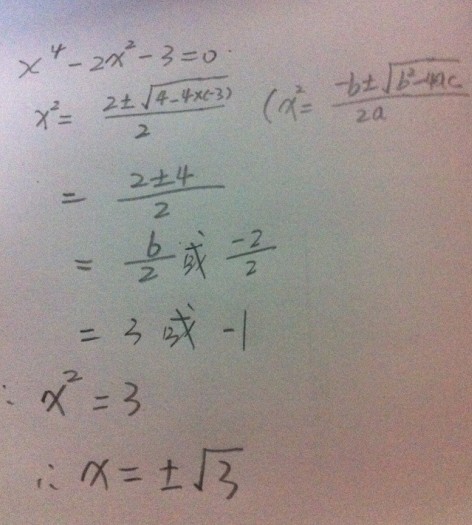 x⁴-2x²-3=0
x²= (2±√(4-4×(-3)))/2 (x²= (-b±√(b²-4ac))/(2a)
= (2±4)/2
= 6/2 或 -2/2
= 3 或 -1
∵ x²=3
∴ x=±√3